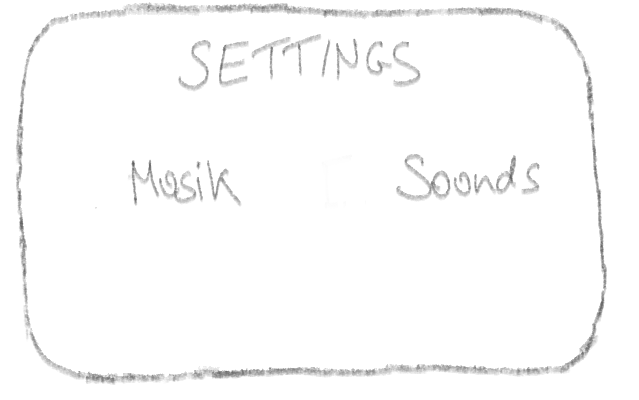 SETTINGS
Musik Sounds